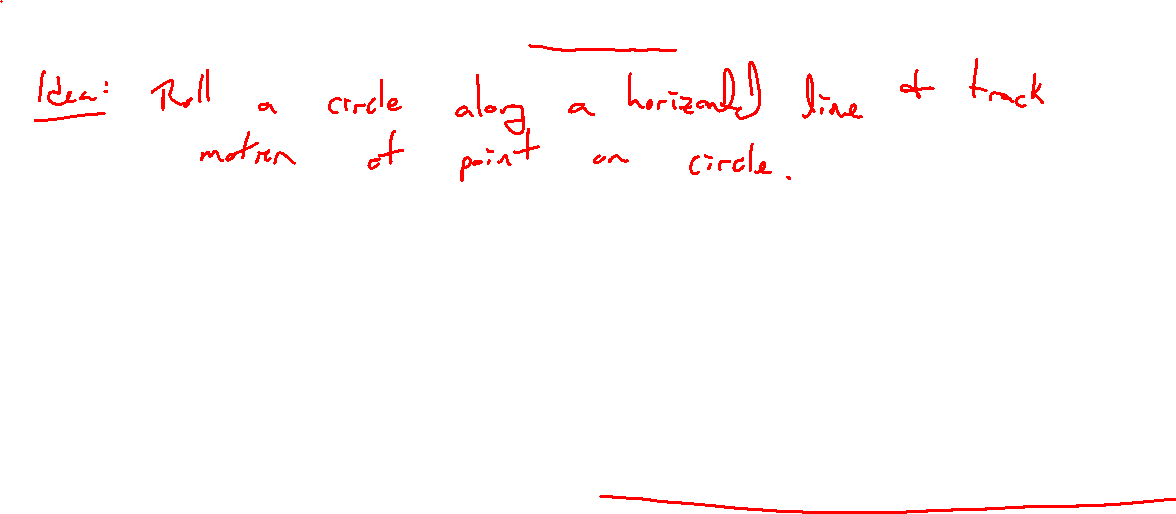 Idea: Roll a circle along a horizontal line & track
motion of point on circle.